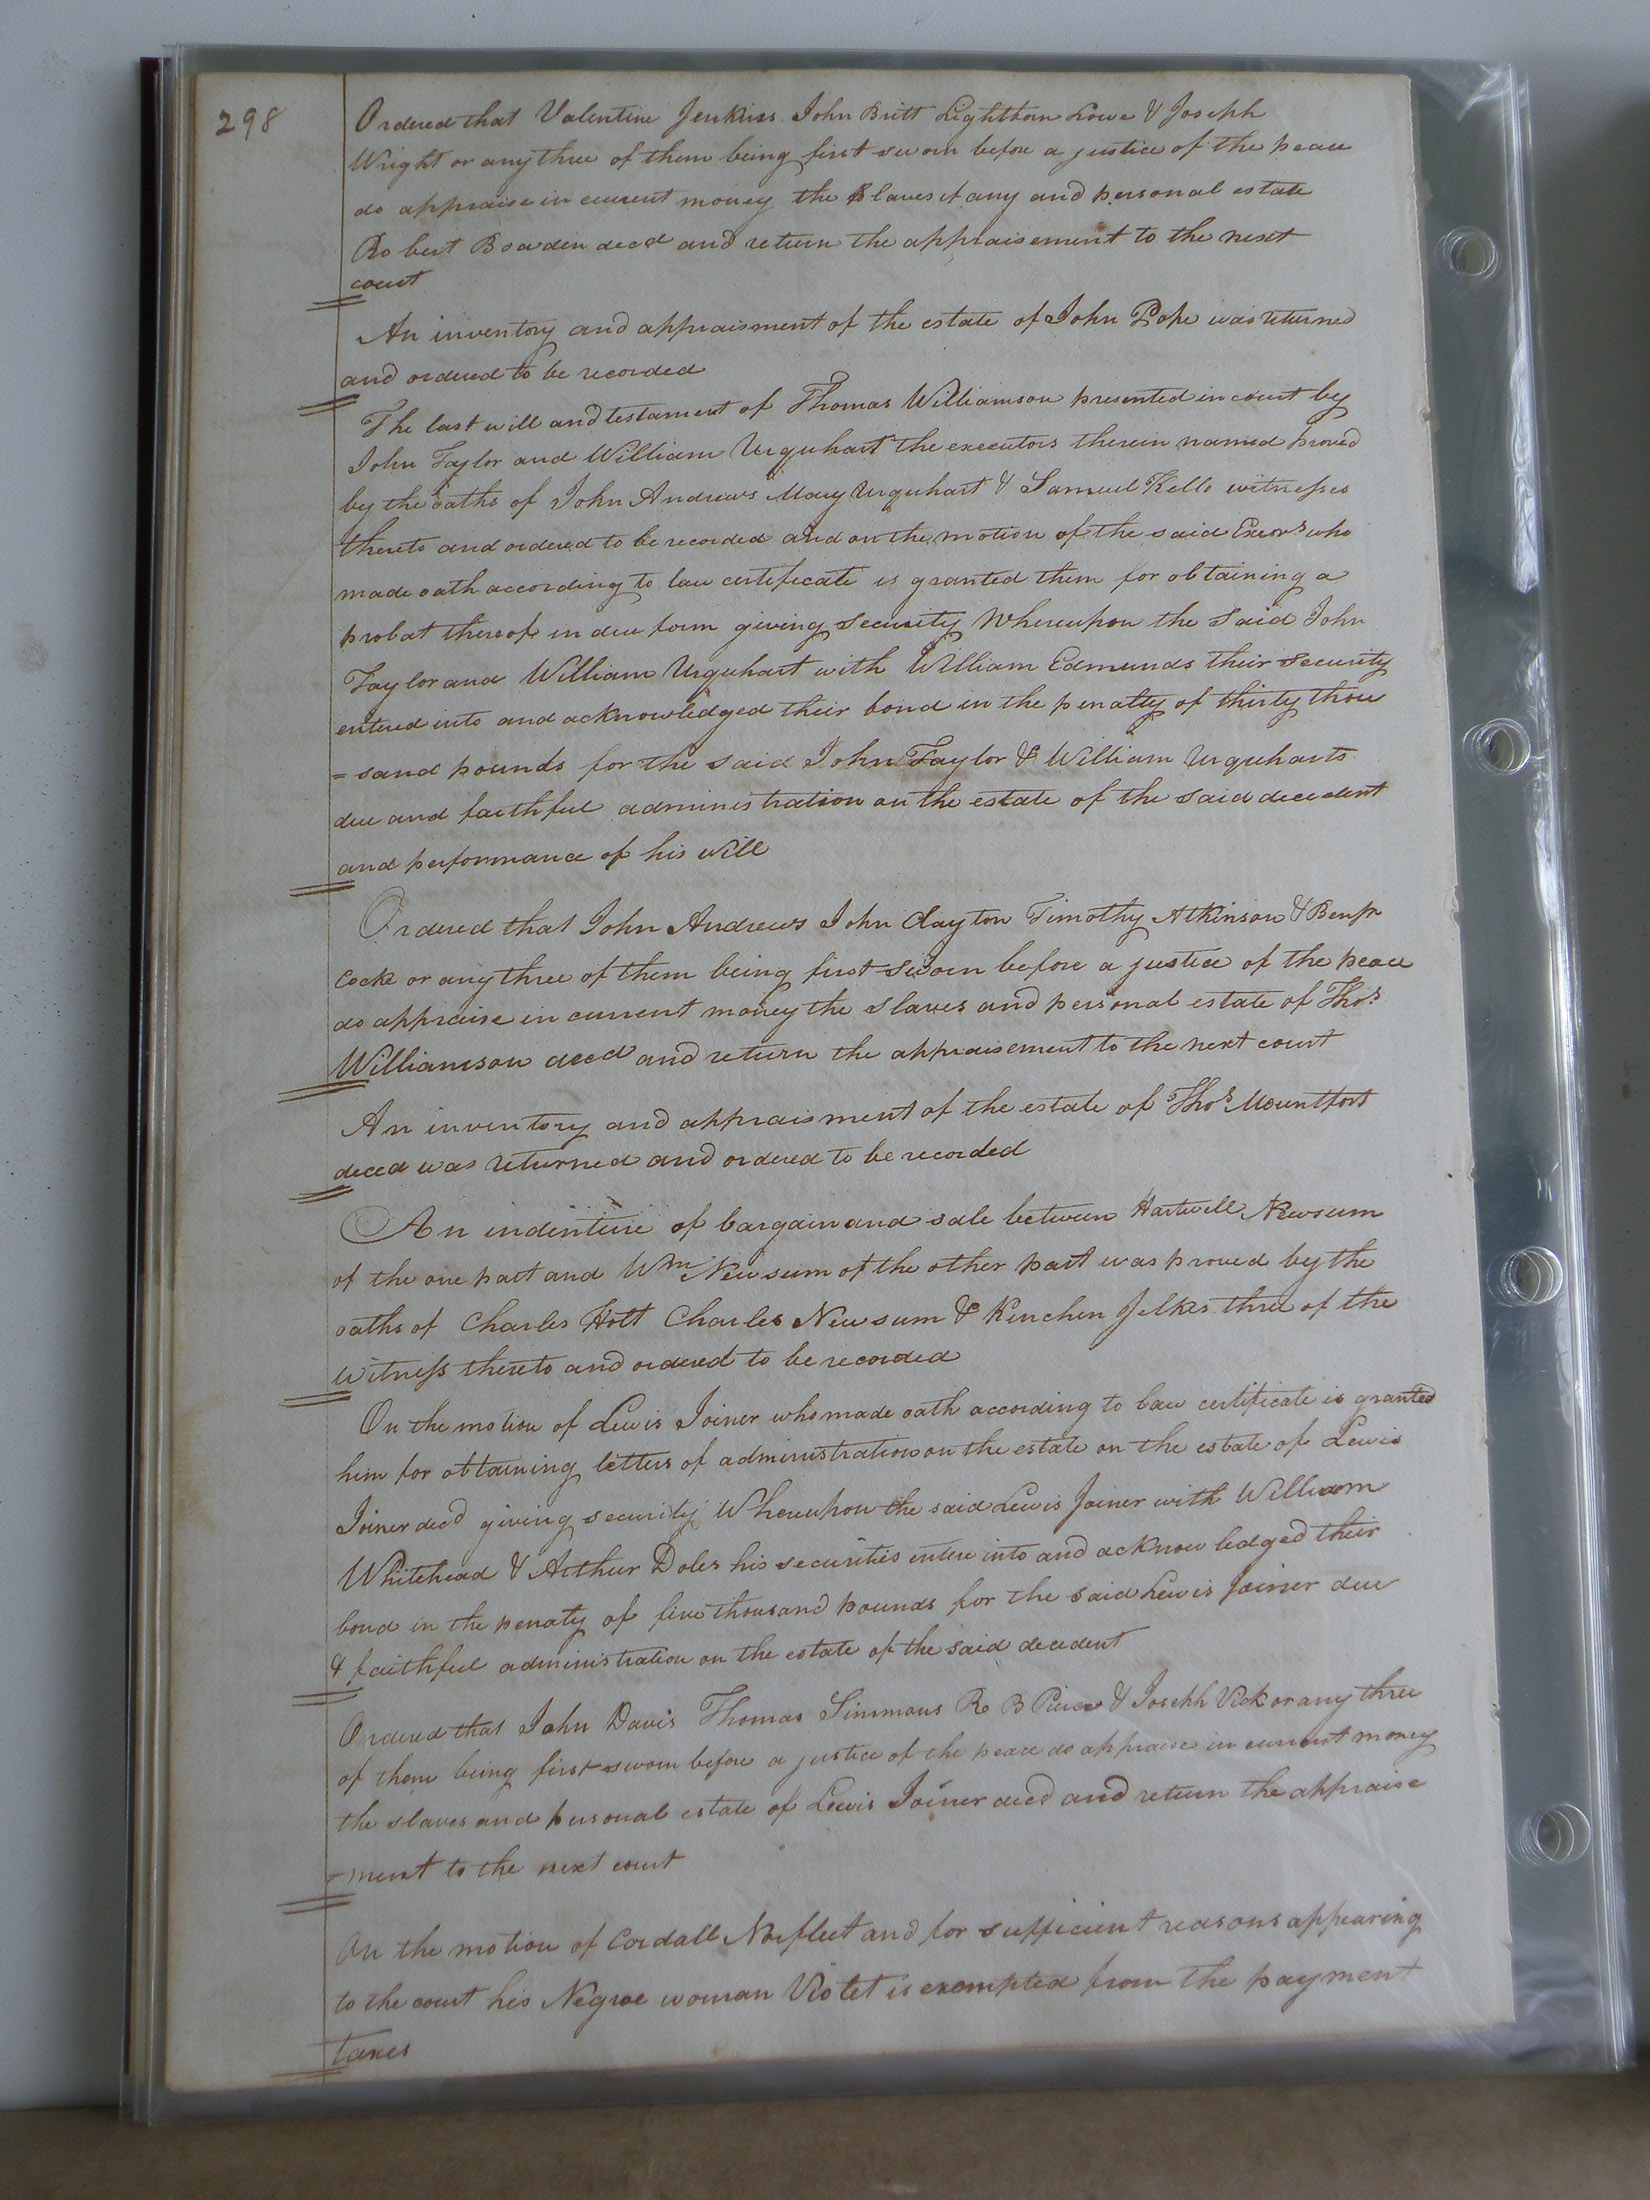 298
Ordered that Valentine Jenkins John Britt Lighthorn Lowe & Joseph
Wright or any three of them being first sworn before a justice of the peace
do appraise in current money the Slaves if any and personal estate
Robert Boaden decd and return the appraisement to the next
court
An inventory and appraisment of the estate of John Pope was returned
and ordered to be recorded
The last will and testament of Thomas Williamson presented in court by
John Taylor and William Urquhart the executors therein named proved
by the oaths of John Andrews Mary Urquhart & Samuel Kello witnesses
thereto and ordered to be recorded and on the motion of the said Exors who
made oath according to law certificate is granted them for obtaining a
probat thereof in due form giving security Whereupon the said John
Taylor and William Urquhart with William Edmunds their security
entered into and acknowledged their bond in the penalty of thirty thou
=sand pounds for the said John Taylor & William Urquharts
due and faithful administration on the estate of the said decedent
and performance of his will
Ordered that John Andrews John Clayton Timothy Atkinson & Benjn
Cocke or any three of them being first sworn before a justice of the peace
do appraise in current money the slaves and personal estate of Thos.
Williamson decd and return the appraisement to the next court
An inventory and appraisment of the estate of Thos. Mountfort
deced was returned and ordered to be recorded
An indenture of bargain and sale between Hartwell Newsum
of the one part and Wm Newsum of the other part was proved by the
oaths of Charles Holt Charles Newsum & Kinchen Jelks three of the
witness thereto and ordered to be recorded
On the motion of Lewis Joiner who made oath according to law certificate is granted
him for obtaining letters of administration on the estate on the estate of Lewis
Joiner decd giving security Whereupon the said Lewis Joiner with William
Whitehead & Arthur Doles his securities entere into and acknowledged their
bond in the penaty of five thousand pounds for the said Lewis Joiner due
& faithful administration on the estate of the said decedent
Ordered that John Davis Thomas Simmons R B Pierce & Joseph Vick or any three
of them being first sworn before a justice of the peace do appraise in current money
the slaves and personal estate of Lewis Joiner decd and return the appraise
=ment to the next court
On the motion of Cordall Norfleet and for sufficient reasons appearing
to the court his Negroe woman Violet is exempted from the payment
taxes